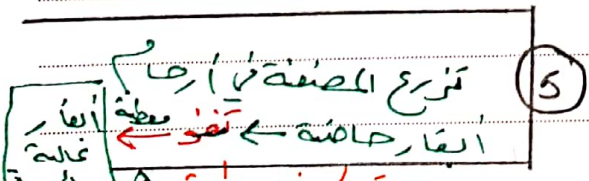 5
تزرع المضغة في أرحام
أبقار حاضنة ← تنمو ← معطية
أبقار
عالية